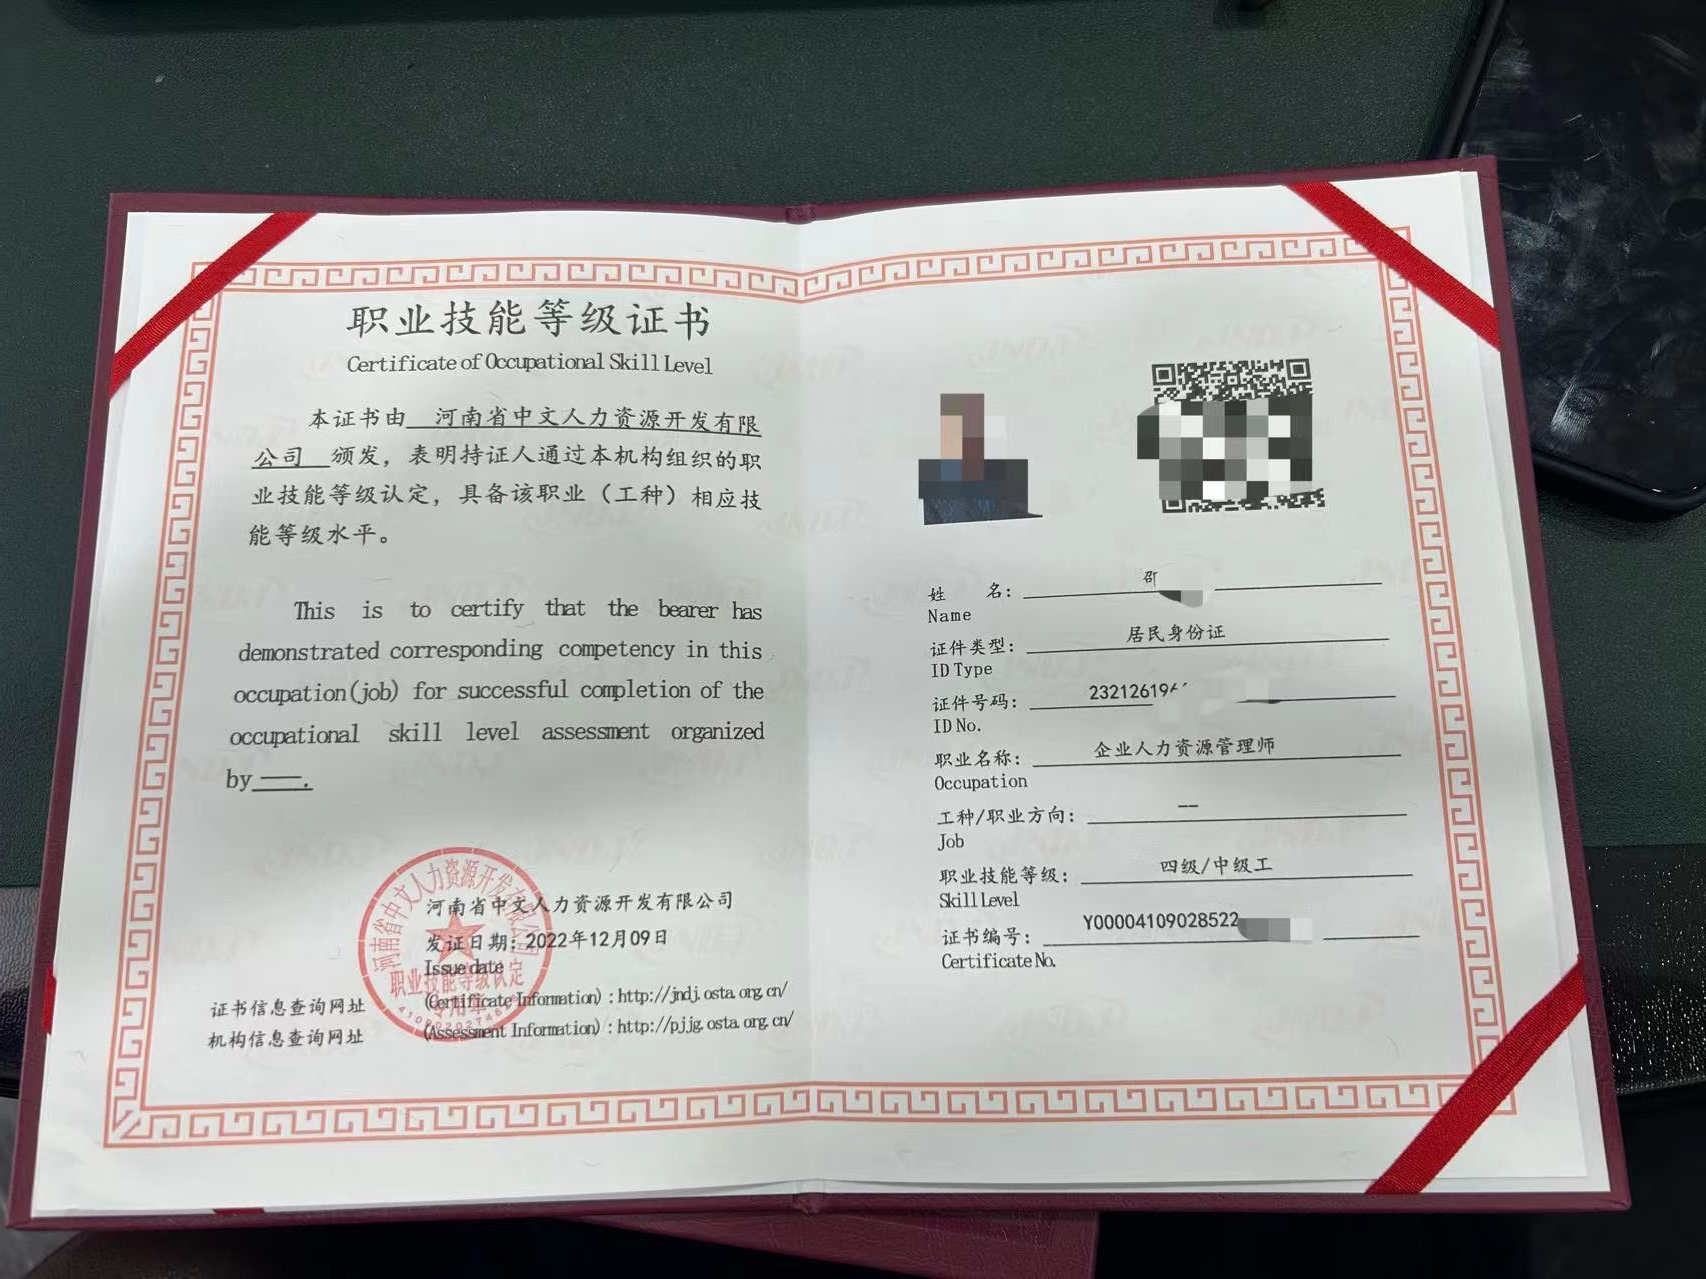 职业技能等级证书
Certificate of Occupational Skill Level
本证书由 河南省中文人力资源开发有限
公司 颁发，表明持证人通过本机构组织的职
业技能等级认定，具备该职业（工种）相应技
能等级水平。
This is to certify that the bearer has
demonstrated corresponding competency in this
occupation(job) for successful completion of the
occupational skill level assessment organized
by —.
河南省中文人力资源开发有限公司
职业技能等级认定
专用章
河南省中文人力资源开发有限公司
发证日期：2022年12月09日
Issue date
证书信息查询网址 (Certificate Information)：http://jndj.osta.org.cn/
机构信息查询网址 (Assessment Information)：http://pjjg.osta.org.cn/
姓 名：
Name
证件类型： 居民身份证
ID Type
证件号码： 23212619
ID No.
职业名称： 企业人力资源管理师
Occupation
工种/职业方向： --
Job
职业技能等级： 四级/中级工
Skill Level
证书编号： Y00004109028522
Certificate No.